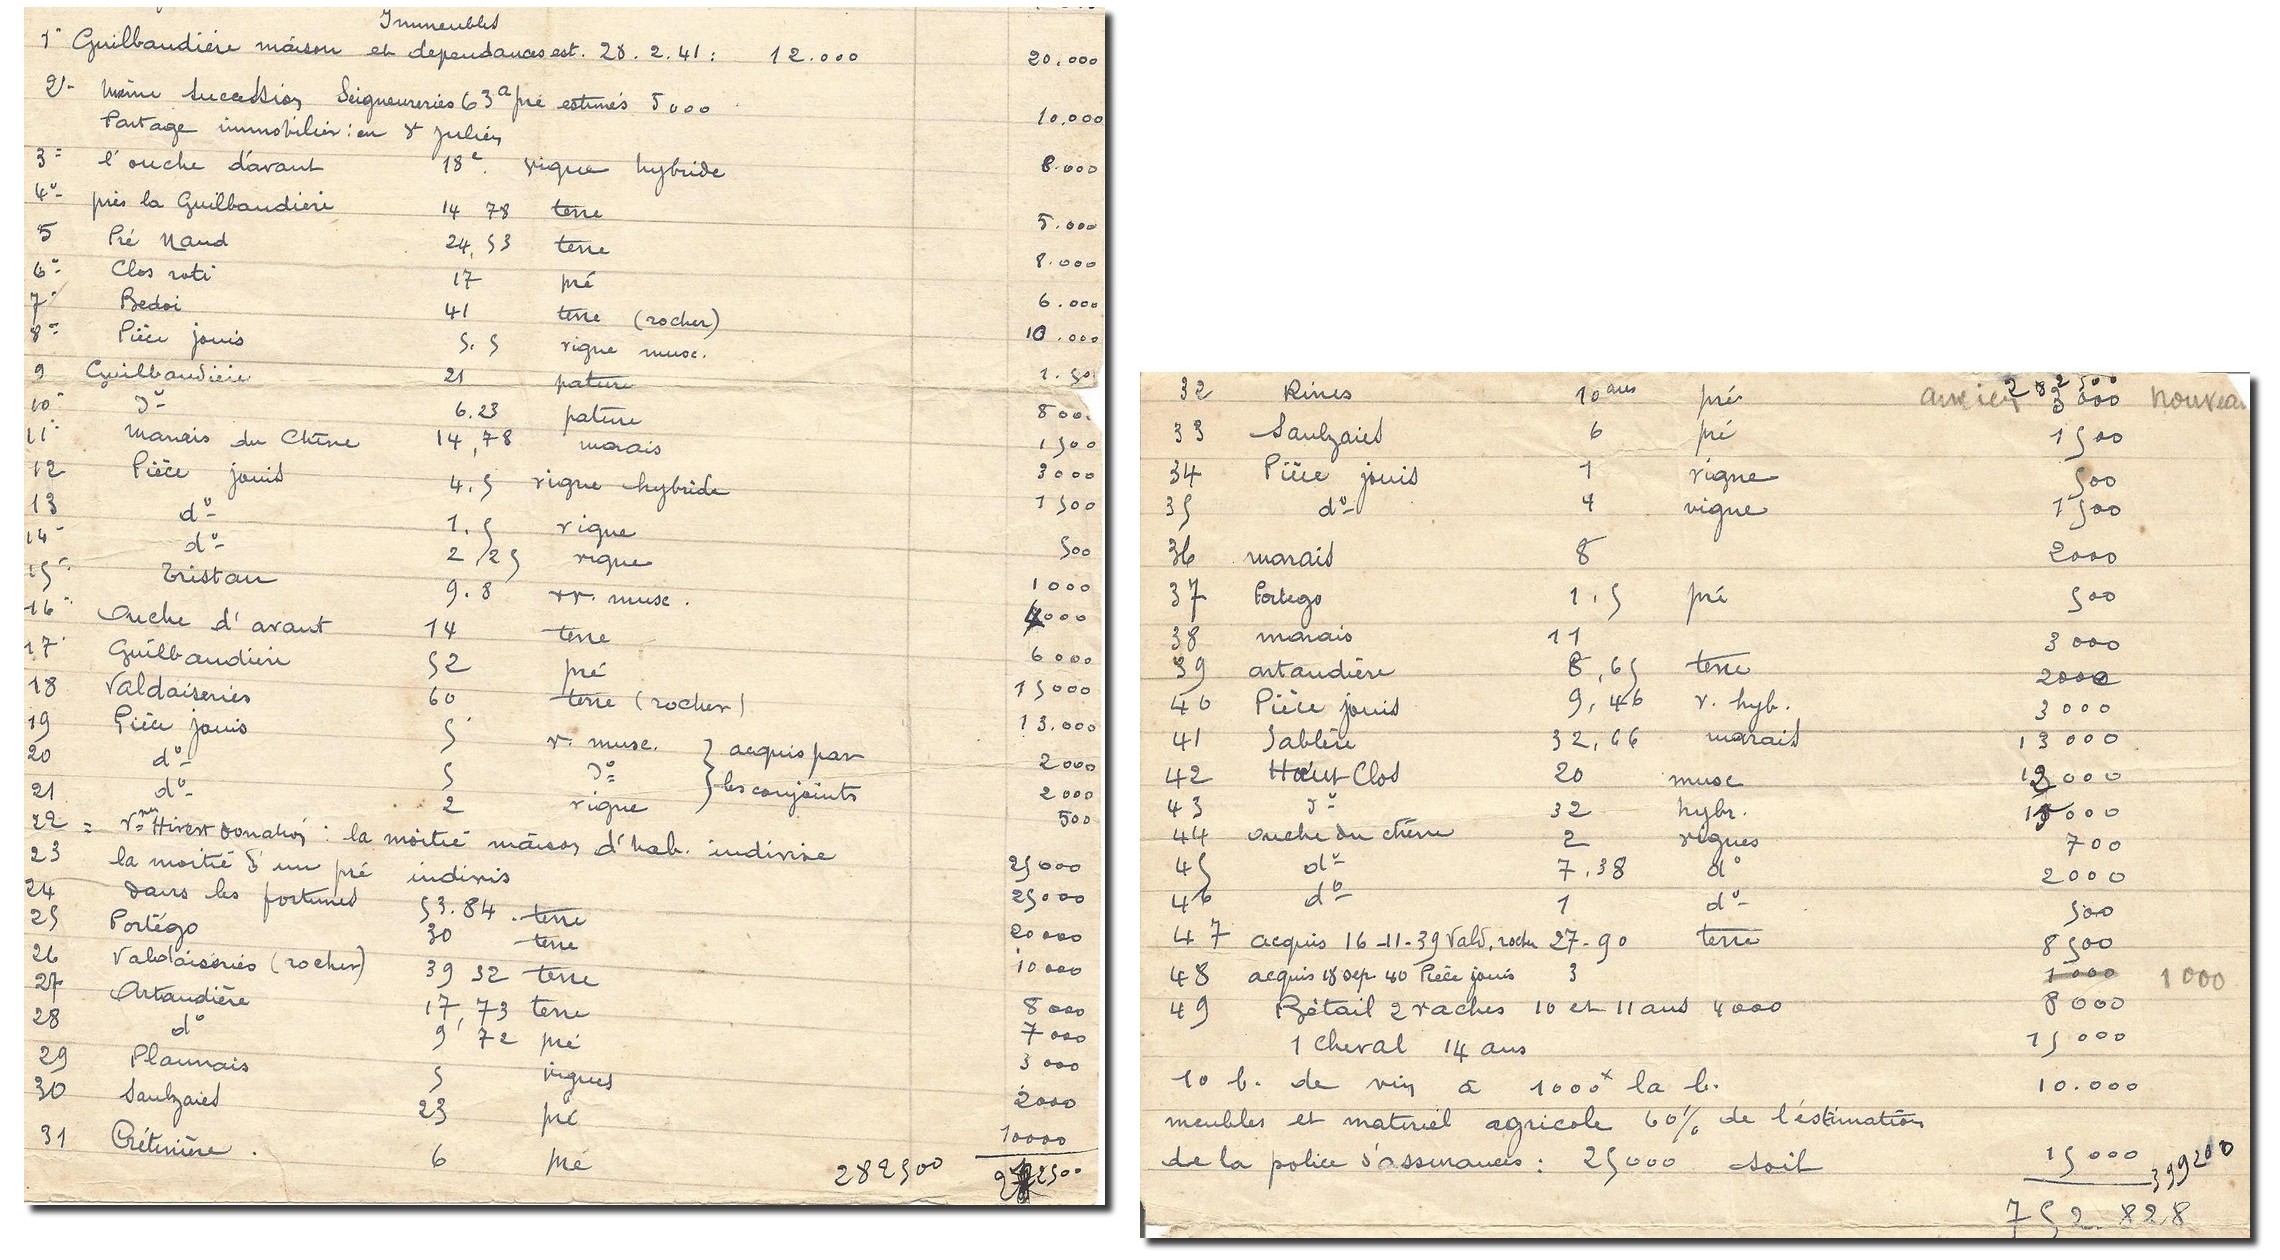 Immeubles
1° Guilbaudière maison et dependances est. 28.2.41 : 12.000 20.000
2°- même succession Seigneureries 63a pré estimés 5000 10.000
Partage immobilier : en St Julien
3= l'ouche d'avant 18c. vigne hybride 8.000
4°- près la Guilbaudière 14 78 terre 5.000
5 Pré Naud 24,53 terre 8.000
6°- Clos roti 17 pré 6.000
7° Bedoi 41 terre (rocher) 10.000
8= Pièce jouis 5.5 vigne musc. 1.50
9 Guilbaudière 21 pature 8000
10° do 6.23 pature 1500
11° marais du Chêne 14,78 marais 3000
12 Pièce jouis 4.5 vigne hybride 1500
13 do 1.5 vigne 500
14- do 2,25 vigne 1000
15- Tristan 9.8 vv. musc. 4000
16- Ouche d'avant 14 terre 6000
17- Guilbaudière 52 pré 15000
18 Valdaiseries 60 terre (rocher) 13.000
19 Pièce jouis 5 v. musc. } acquis par 2000
20 do 5 do } les conjoints 2000
21 do 2 vigne 500
22 = Vve Hivert donation : la moitié maison d'hab. indivise 25000
23 la moitié d'un pré indivis 25000
24 dans les fortunes 53.84. terre 20000
25 Portégo 30 terre 10000
26 Valdaiseries (rocher) 39 32 terre 8000
27 Artaudière 17,73 terre 7000
28 do 9,72 pré 3000
29 Plannais 5 vignes 2000
30 Saulzaies 23 pré 10000
31 Crétinière. 6 pré
282500 2500
ancien 282500 nouveau
32 Rines 10 ares pré 3000
33 Saulzaies 6 pré 1500
34 Pièce jouis 1 vigne 500
35 do 4 vigne 1500
36 marais 8 2000
37 Portego 1,5 pré 500
38 marais 11 3000
39 artaudière 8,65 terre 2000
40 Pièce jouis 9,46 v. hyb. 3000
41 Sablère 32,66 marais 13000
42 Haut Clos 20 musc 12000
43 do 32 hybr. 15000
44 ouche du chêne 2 vignes 700
45 do 7.38 do 2000
46 do 1 do 500
47 acquis 16-11-39 Vald. rocher 27-90 terre 8500
48 acquis 18 sep 40 Pièce jouis 3 1000 1000
49 Bétail 2 vaches 10 et 11 ans 4000 8000
1 cheval 14 ans 15000
10 b. de vin à 1000x la b. 10.000
meubles et matériel agricole 60% de l'éstimation
de la police d'assurances : 25000 soit 15000
399200
752.828